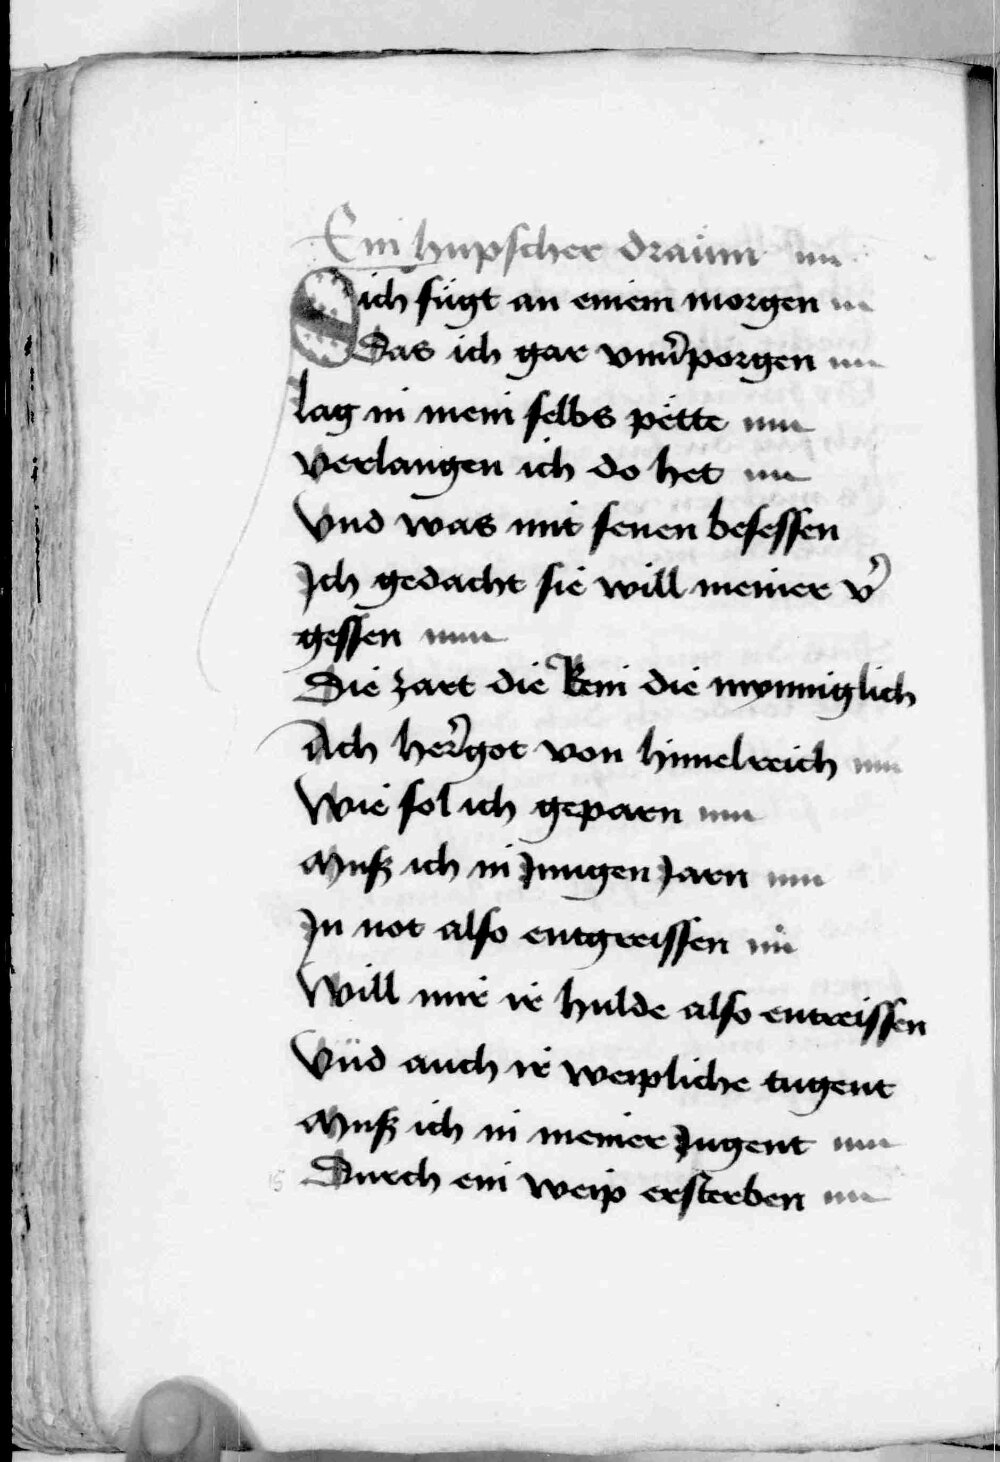 Ein hupscher draüm
Eich fügt an einem morgen
Das ich gar vnv̄porgen
lag in mein selbs pëtte
Verlangen ich do het
Vnd was mit senen besessen
Ich gedacht sie will meiner v̄
gessen
Die zart die Rein die mynniglich
Ach her̄got von himelreich
Wie sol ich geparn
Muß ich in Jungen Jarn
In not also entgreissen
Will mir ir hulde also entreissen
Vnd auch ir weipliche tugent
Muß ich in meiner Jugent
Durch ein weip ersterben